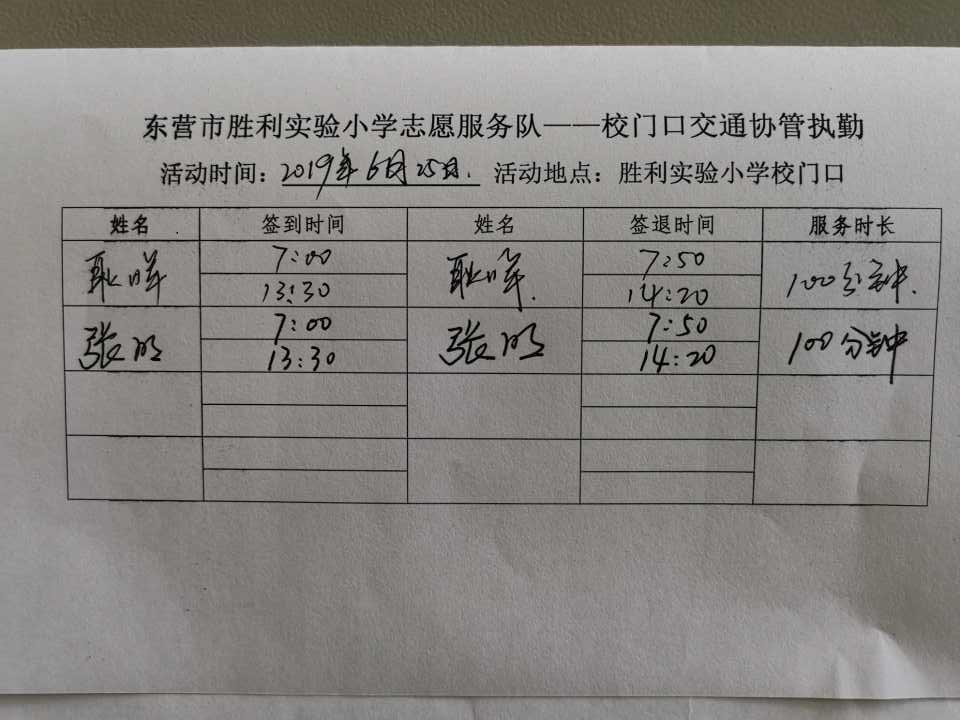 东营市胜利实验小学志愿服务队——校门口交通协管执勤
活动时间：2019年6月25日. 活动地点：胜利实验小学校门口
姓名 签到时间 姓名 签退时间 服务时长
7:00 7:50
耿 耿 100分钟.
13:30 14:20
7:00 7:50
张明 张明 100分钟
13:30 14:20